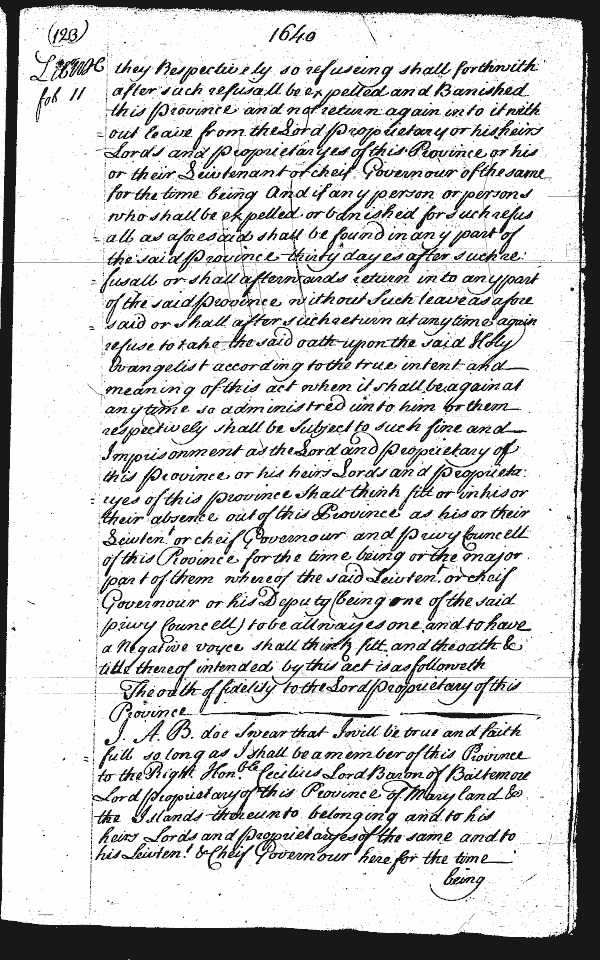 (123)
1640
Liber C
fol 11
they Respectively so refuseing shall forthwith
after such refusall be expelled and Banished
this Province and not return again into it with
= out leave from the Lord Proprietary or his heirs
Lords and Proprietaryes of this Province or his
or their Leivtenant or cheif Governour of the same
for the time being And if any person or persons
who shall be expelled or banished for such refus
= all as aforesaid shall be found in any part of
the said Province thirty dayes after such re:
= fusall or shall afterwards return into any part
of the said Province without Such leave as afore
= said or shall after such return at any time again
refuse to take the said oath upon the said Holy
Evangelist according to the true intent and
meaning of this act when it shall be again at
any time so administred unto him or them
respectively shall be Subject to such fine and
Imprisonment as the Lord and Proprietary of
this Province or his heirs Lords and Proprieta:
= ryes of this Province shall think fitt or in his or
their absence out of this Province as his or their
Leivten.t or cheif Governour and Privy Councell
of this Rovince for the time being or the major
part of them whereof the said Leivten.t or cheif
Governour or his Deputy (being one of the said
privy Councell) to be allwayes one and to have
a Negative voyce shall think fitt and the oath &
title thereof intended by this act is as followeth
The oath of fidelity to the Lord Proprietary of this
Province
I. A. B. doe Swear that I will be true and faith
= full so long as I shall be a member of this Province
to the Right Hon.ble Cecilius Lord Baron of Baltemore
Lord Proprietary of this Province of Maryland &
the Islands thereunto belonging and to his
heirs Lords and Proprietaryes of the same and to
his Leivten.t & Cheif Governour here for the time
being